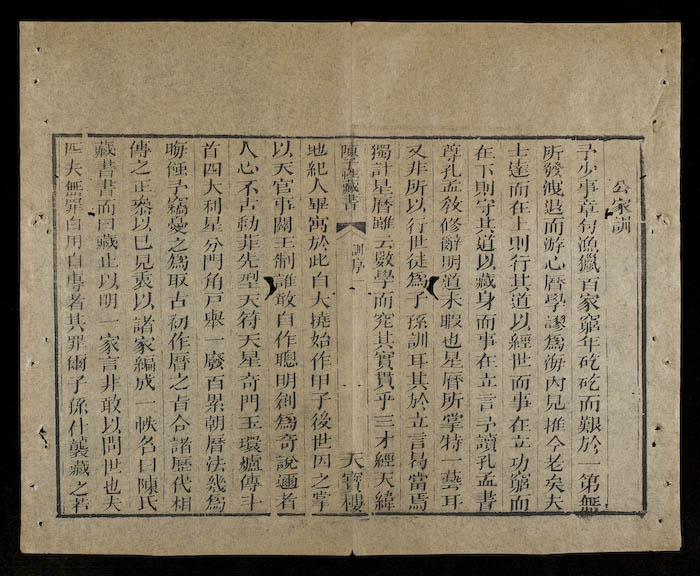 公家訓
予少事章句漁獵百家窮年矻矻而艱於一第無
所發洩退而游心曆學謬爲海內見推今老矣夫
士達而在上則行其道以經世而事在立功窮而
在下則守其道以藏身而事在立言予讀孔孟書
尊孔孟教修辭明道未暇也星曆所掌特一藝耳
又非所以行世徒爲子孫訓耳其於立言曷當焉
獨計星曆雖云數學而究其實貫乎三才經天緯
陳子性藏書 訓序 天寶樓
地紀人畢寓於此自大撓始作甲子後世因之掌
以天官事關王制誰敢自作聰明創爲奇說邇者
人心不古動非先型天符天星奇門玉環爐傳斗
首四大利星分門角戶舉一廢百累朝曆法幾爲
晦蝕予竊憂之爲取古初作曆之旨合諸歷代相
傳之正叅以己見衷以諸家編成一帙名曰陳氏
藏書書而曰藏止以明一家言非敢以問世也夫
匹夫無罪自用自專者其罪爾子孫什襲藏之若